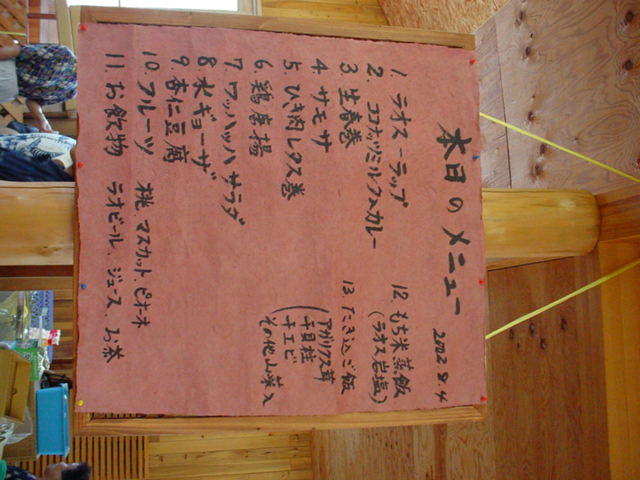 本日のメニュー
2002 8.4
1. ラオスーラップ
2. ココナッツミルクカレー
3. 生春巻
4. サモサ
5. ひき肉レタス巻
6. 鶏唐揚
7. ワッハッハサラダ
8. 水ギョーザ
9. 杏仁豆腐
10. フルーツ 桃、マスカット、ピオーネ
11. お飲物 ラオビール、ジュース、お茶
12. もち米蒸飯
(ラオス岩塩)
13. たき込ご飯
(アガリクス茸
干貝柱
干エビ
その他山菜入